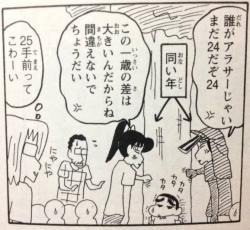 誰がアラサーじゃい
まだ24だぞ24
同い年
この一歳の差は
大きいんだからね
間違えないで
ちょうだい
25手前って
こわーい
カタ
カタ
カタ
カタ
にやにや